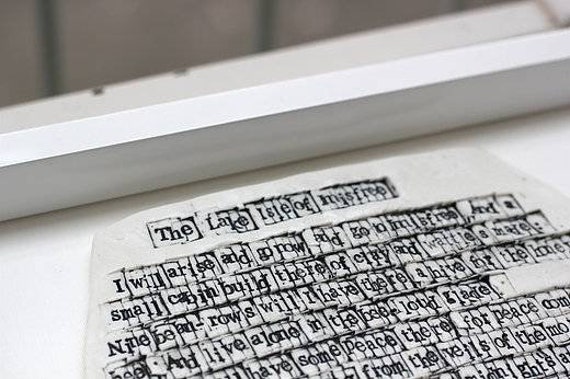 The Lake Isle of Innisfree
I will arise and go now, and go to Innisfree, And a
small cabin build there, of clay and wattles made:
Nine bean-rows will I have there, a hive for the hone
bee, And live alone in the bee-loud glade.
have some peace there, for peace com
from the veils of the mo